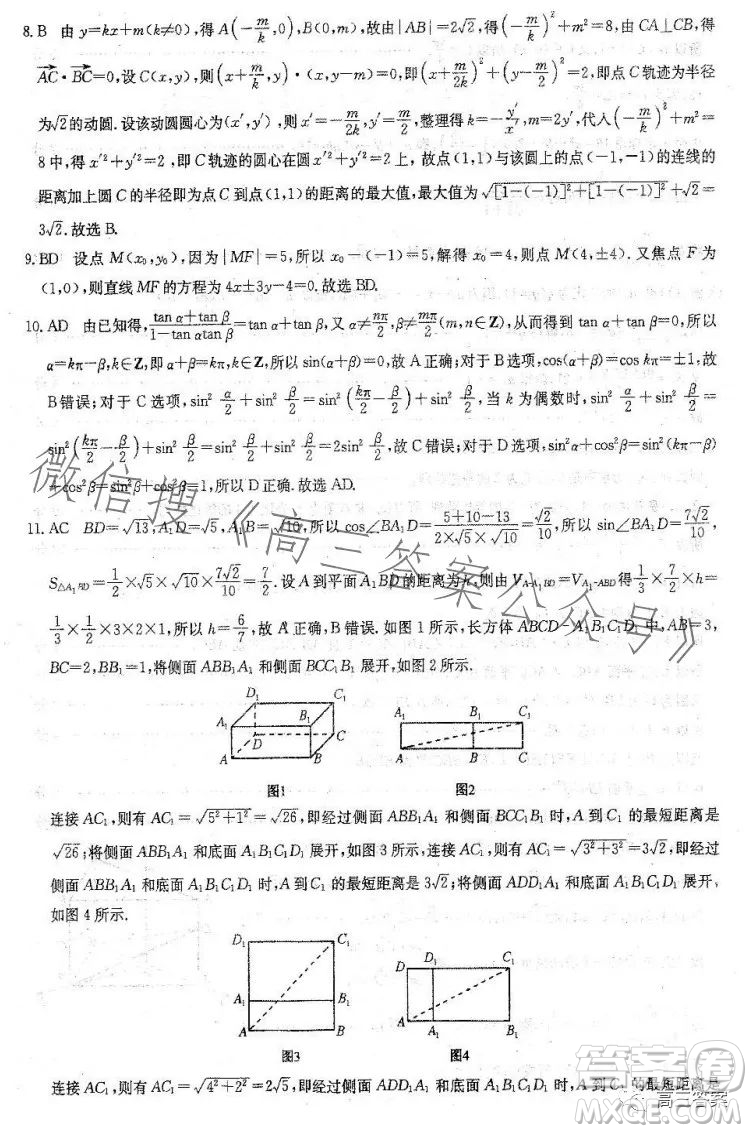 8. B 由 y=kx+m(k≠0),得 A(-m/k,0),B(0,m),故由|AB|=2√2,得(-m/k)²+m²=8,由 CA⊥CB,得
AC·BC=0,设 C(x,y),则(x+m/k,y)·(x,y-m)=0,即(x+m/2k)²+(y-m/2)²=2,即点 C 轨迹为半径
为√2的动圆.设该动圆圆心为(x′,y′),则x′=-m/2k,y′=m/2,整理得k=-y′/x′,m=2y′,代入(-m/k)²+m²=
8中,得x′²+y′²=2,即C轨迹的圆心在圆x′²+y′²=2上,故点(1,1)与该圆上的点(-1,-1)的连线的
距离加上圆C的半径即为点C到点(1,1)的距离的最大值,最大值为√[1-(-1)]²+[1-(-1)]²+√2=
3√2.故选B.
9. BD 设点 M(x₀,y₀),因为|MF|=5,所以 x₀-(-1)=5,解得 x₀=4,则点 M(4,±4).又焦点 F 为
(1,0),则直线MF的方程为4x±3y-4=0.故选BD.
10. AD 由已知得,tan α+tan β/1-tan αtan β=tan α+tan β,又 α≠nπ/2,β≠mπ/2(m,n∈Z),从而得到 tan α+tan β=0,所以
α=kπ-β,k∈Z,即α+β=kπ,k∈Z,所以sin(α+β)=0,故 A 正确;对于 B 选项,cos(α+β)=cos kπ=±1,故
B 错误;对于 C 选项,sin² α/2+sin² β/2=sin²(kπ/2-β/2)+sin² β/2,当 k 为偶数时,sin² α/2+sin² β/2=
sin²(kπ/2-β/2)+sin² β/2=sin² β/2+sin² β/2=2sin² β/2,故 C 错误;对于 D 选项,sin²α+cos²β=sin²(kπ-β)
+cos²β=sin²β+cos²β=1,所以D正确.故选AD.
11. AC BD=√13,A₁D=√5,A₁B=√10,所以cos∠BA₁D=5+10-13/2×√5×√10=√2/10,所以 sin∠BA₁D=7√2/10,
S△A₁BD=1/2×√5×√10×7√2/10=7/2.设A到平面A₁BD的距离为h,则由V_A-A₁BD=V_A₁-ABD得1/3×7/2×h=
1/3×1/2×3×2×1,所以h=6/7,故 A 正确,B 错误.如图 1 所示,长方体 ABCD-A₁B₁C₁D₁ 中,AB=3,
BC=2,BB₁=1,将侧面ABB₁A₁ 和侧面BCC₁B₁ 展开,如图 2 所示.
D₁ C₁
A₁ B₁
D C
A B
图1
A₁ B₁ C₁
A B C
图2
连接 AC₁,则有 AC₁=√5²+1²=√26,即经过侧面 ABB₁A₁ 和侧面 BCC₁B₁ 时,A 到 C₁ 的最短距离是
√26;将侧面 ABB₁A₁ 和底面 A₁B₁C₁D₁ 展开,如图 3 所示,连接 AC₁,则有 AC₁=√3²+3²=3√2,即经过
侧面 ABB₁A₁ 和底面 A₁B₁C₁D₁ 时,A 到 C₁ 的最短距离是 3√2;将侧面 ADD₁A₁ 和底面 A₁B₁C₁D₁ 展开,
如图 4 所示.
D₁ C₁
A₁ B₁
A B
图3
D D₁ C₁
A A₁ B₁
图4
连接 AC₁,则有 AC₁=√4²+2²=2√5,即经过侧面 ADD₁A₁ 和底面 A₁B₁C₁D₁ 时,A 到 C₁ 的最短距离是
微信搜《高三答案公众号》
答案圈
高三答案
MXQE.COM